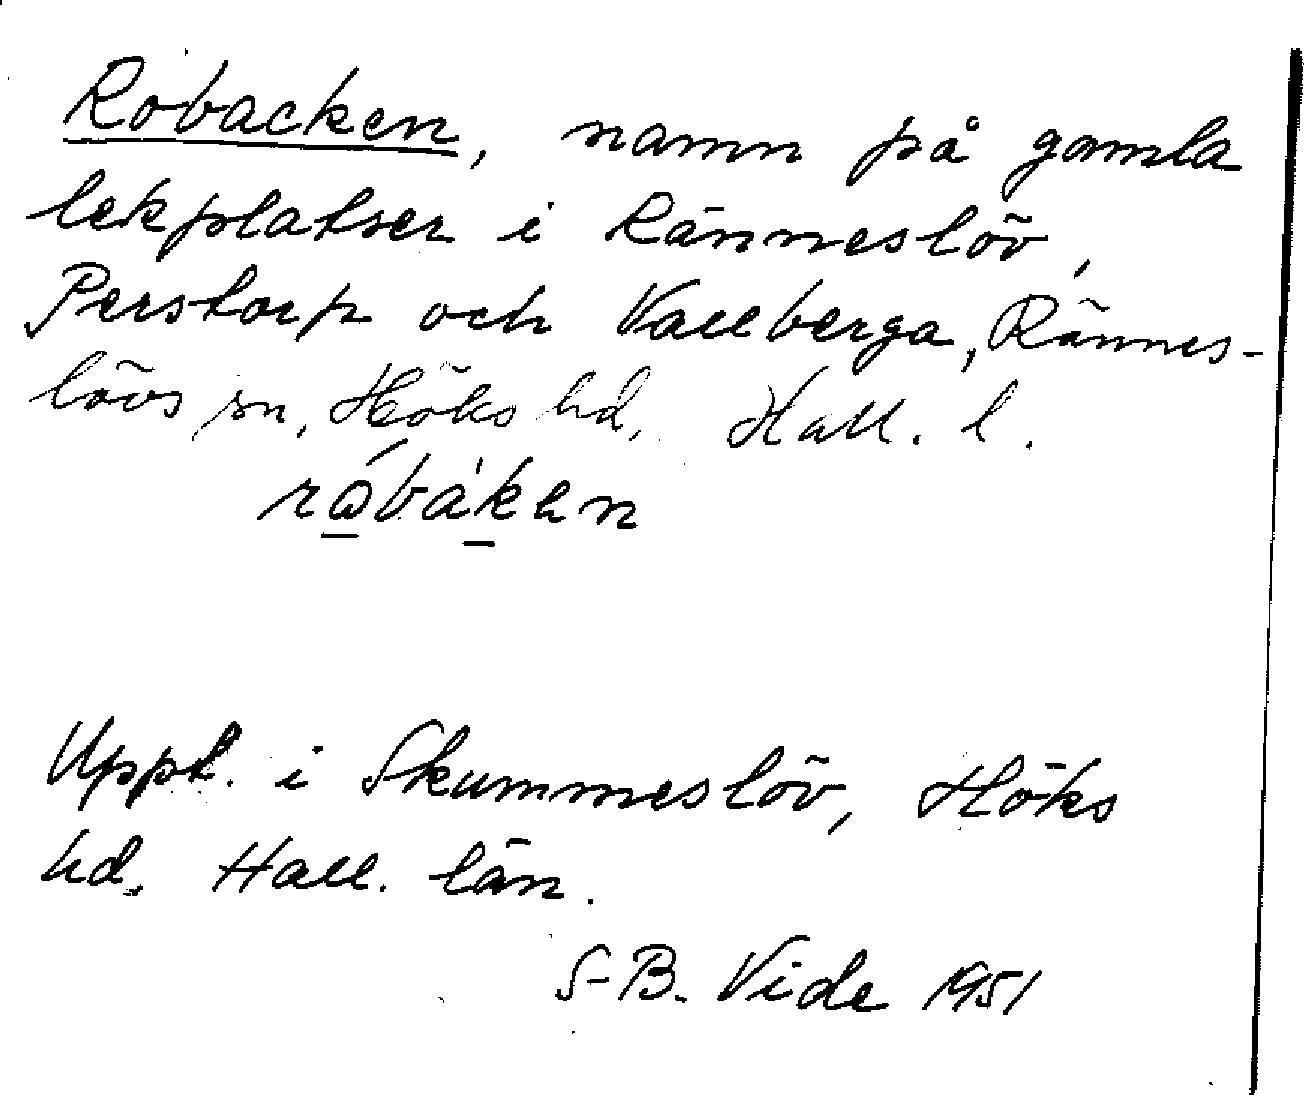 Robacken, namn på gamla
lekplatser i Ränneslöv,
Perstorp och Vallberga, Rännes-
lövs sn, Höks hd, Hall. l.
Uppt. i Skummeslöv, Höks
hd, Hall. län.
S-B. Vide 1951